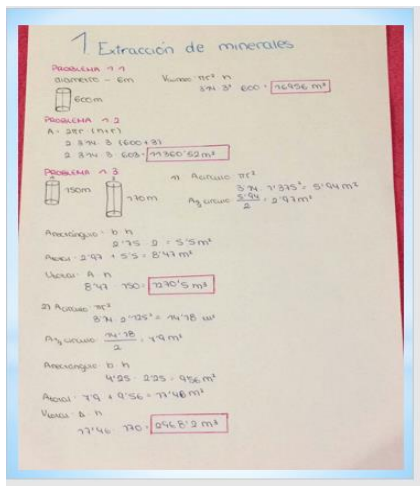 1 Extracción de minerales
PROBLEMA 1.1
diametro - 6m Volumen: πr² · h
3'14 · 3² · 600 = 16956 m³
600m
PROBLEMA 1.2
A = 2πr · (h+r)
2 · 3'14 · 3 · (600+3)
2 · 3'14 · 3 · 603 = 11360'52 m²
PROBLEMA 1.3 1) Acirculo: πr²
150m 170m 3'14 · 1'375² = 5'94 m²
A½ circulo: 5'94/2 = 2'97 m²
Arectángulo: b · h
2'75 · 2 = 5'5 m²
Atotal: 2'97 + 5'5 = 8'47 m²
Vtotal: A · h
8'47 · 150 = 1270'5 m³
2) Acirculo: πr²
3'14 · 2'125² = 14'18 m²
A½ circulo: 14'18/2 = 7'9 m²
Arectangulo: b · h
4'25 · 2'25 = 9'56 m²
Atotal: 7'9 + 9'56 = 17'46 m²
Vtotal: A · h
17'46 · 170 = 2968'2 m³